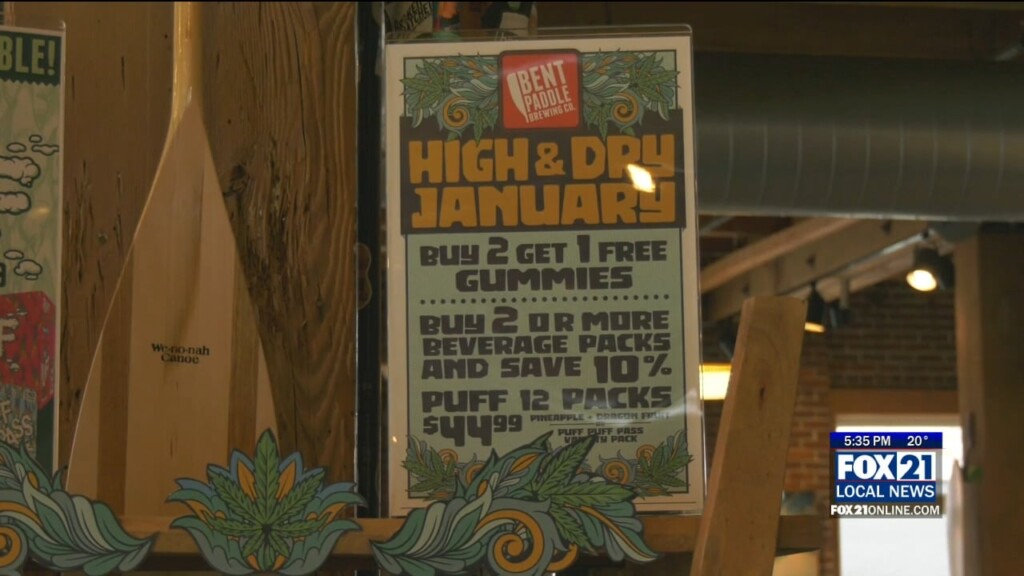 BLE!
BENT
PADDLE
BREWING CO.
HIGH & DRY
JANUARY
BUY 2 GET 1 FREE
GUMMIES
BUY 2 OR MORE
BEVERAGE PACKS
AND SAVE 10%
PUFF 12 PACKS
$44.99 PINEAPPLE - DRAGON FRUIT
PUFF PUFF PASS
VARIETY PACK
We-no-nah
Canoe
5:35 PM 20°
FOX 21
LOCAL NEWS
FOX21ONLINE.COM